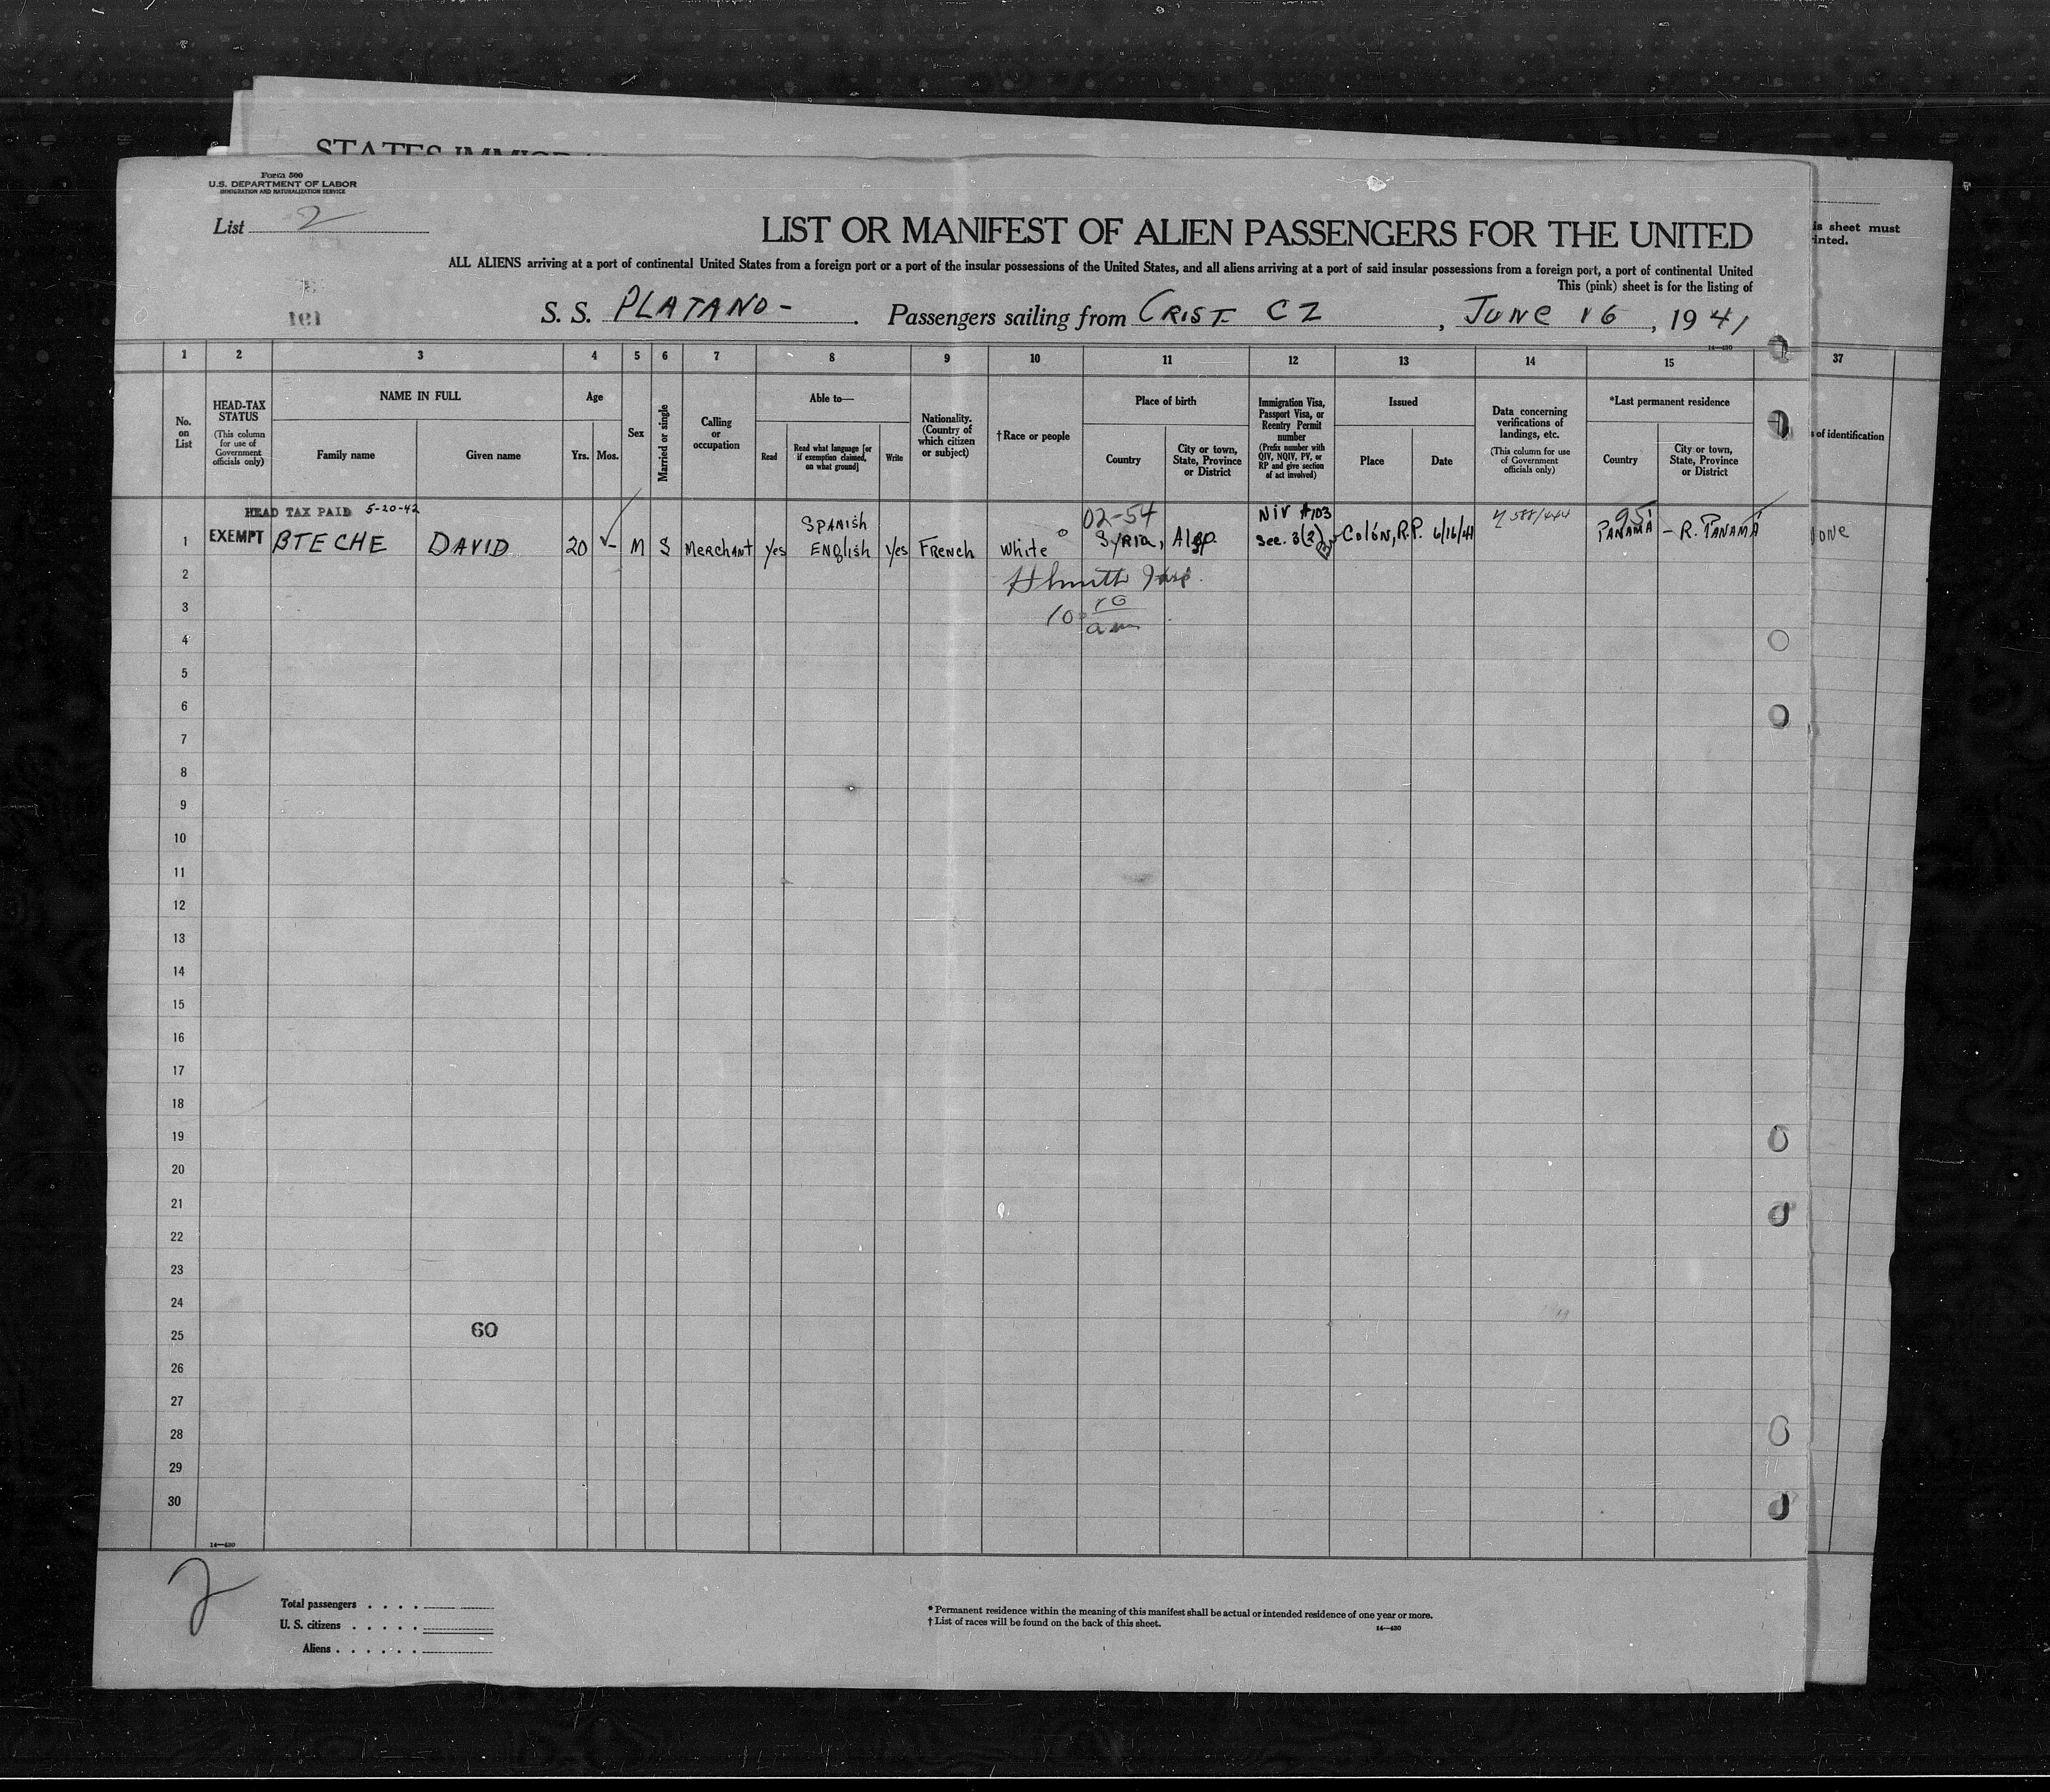 STATES IMMIGRA
Form 500
U.S. DEPARTMENT OF LABOR
IMMIGRATION AND NATURALIZATION SERVICE
List 2
LIST OR MANIFEST OF ALIEN PASSENGERS FOR THE UNITED
is sheet must
inted.
ALL ALIENS arriving at a port of continental United States from a foreign port or a port of the insular possessions of the United States, and all aliens arriving at a port of said insular possessions from a foreign port, a port of continental United
This (pink) sheet is for the listing of
161
S. S. PLATANO - . Passengers sailing from CRIST. CZ , JUNE 16 , 1941
14—430
1 2 3 4 5 6 7 8 9 10 11 12 13 14 15 37
No. on List
HEAD-TAX STATUS
(This column for use of Government officials only)
NAME IN FULL
Family name
Given name
Age
Yrs. Mos.
Sex
Married or single
Calling or occupation
Able to—
Read
Read what language [or if exemption claimed, on what ground]
Write
Nationality. (Country of which citizen or subject)
†Race or people
Place of birth
Country
City or town, State, Province or District
Immigration Visa, Passport Visa, or Reentry Permit number
(Prefix number with QIV, NQIV, PV, or RP and give section of act involved)
Issued
Place
Date
Data concerning verifications of landings, etc.
(This column for use of Government officials only)
*Last permanent residence
Country
City or town, State, Province or District
s of identification
HEAD TAX PAID 5-20-42
02-54
NIV #103
951
1 EXEMPT BTECHE DAVID 20 - M S MERCHANT Yes SPANISH ENGLISH Yes FRENCH White SYRIA, Alep. Sec. 3(2) Colón, R.P. 6/16/41 PANAMÁ - R. PANAMÁ
2
3
10 10 am
4
5
6
7
8
9
10
11
12
13
14
15
16
17
18
19
20
21
22
23
24
25 60
26
27
28
29
30
14—430
2
Total passengers . . . .
U. S. citizens . . . . .
Aliens . . . . . .
* Permanent residence within the meaning of this manifest shall be actual or intended residence of one year or more.
† List of races will be found on the back of this sheet.
14—430